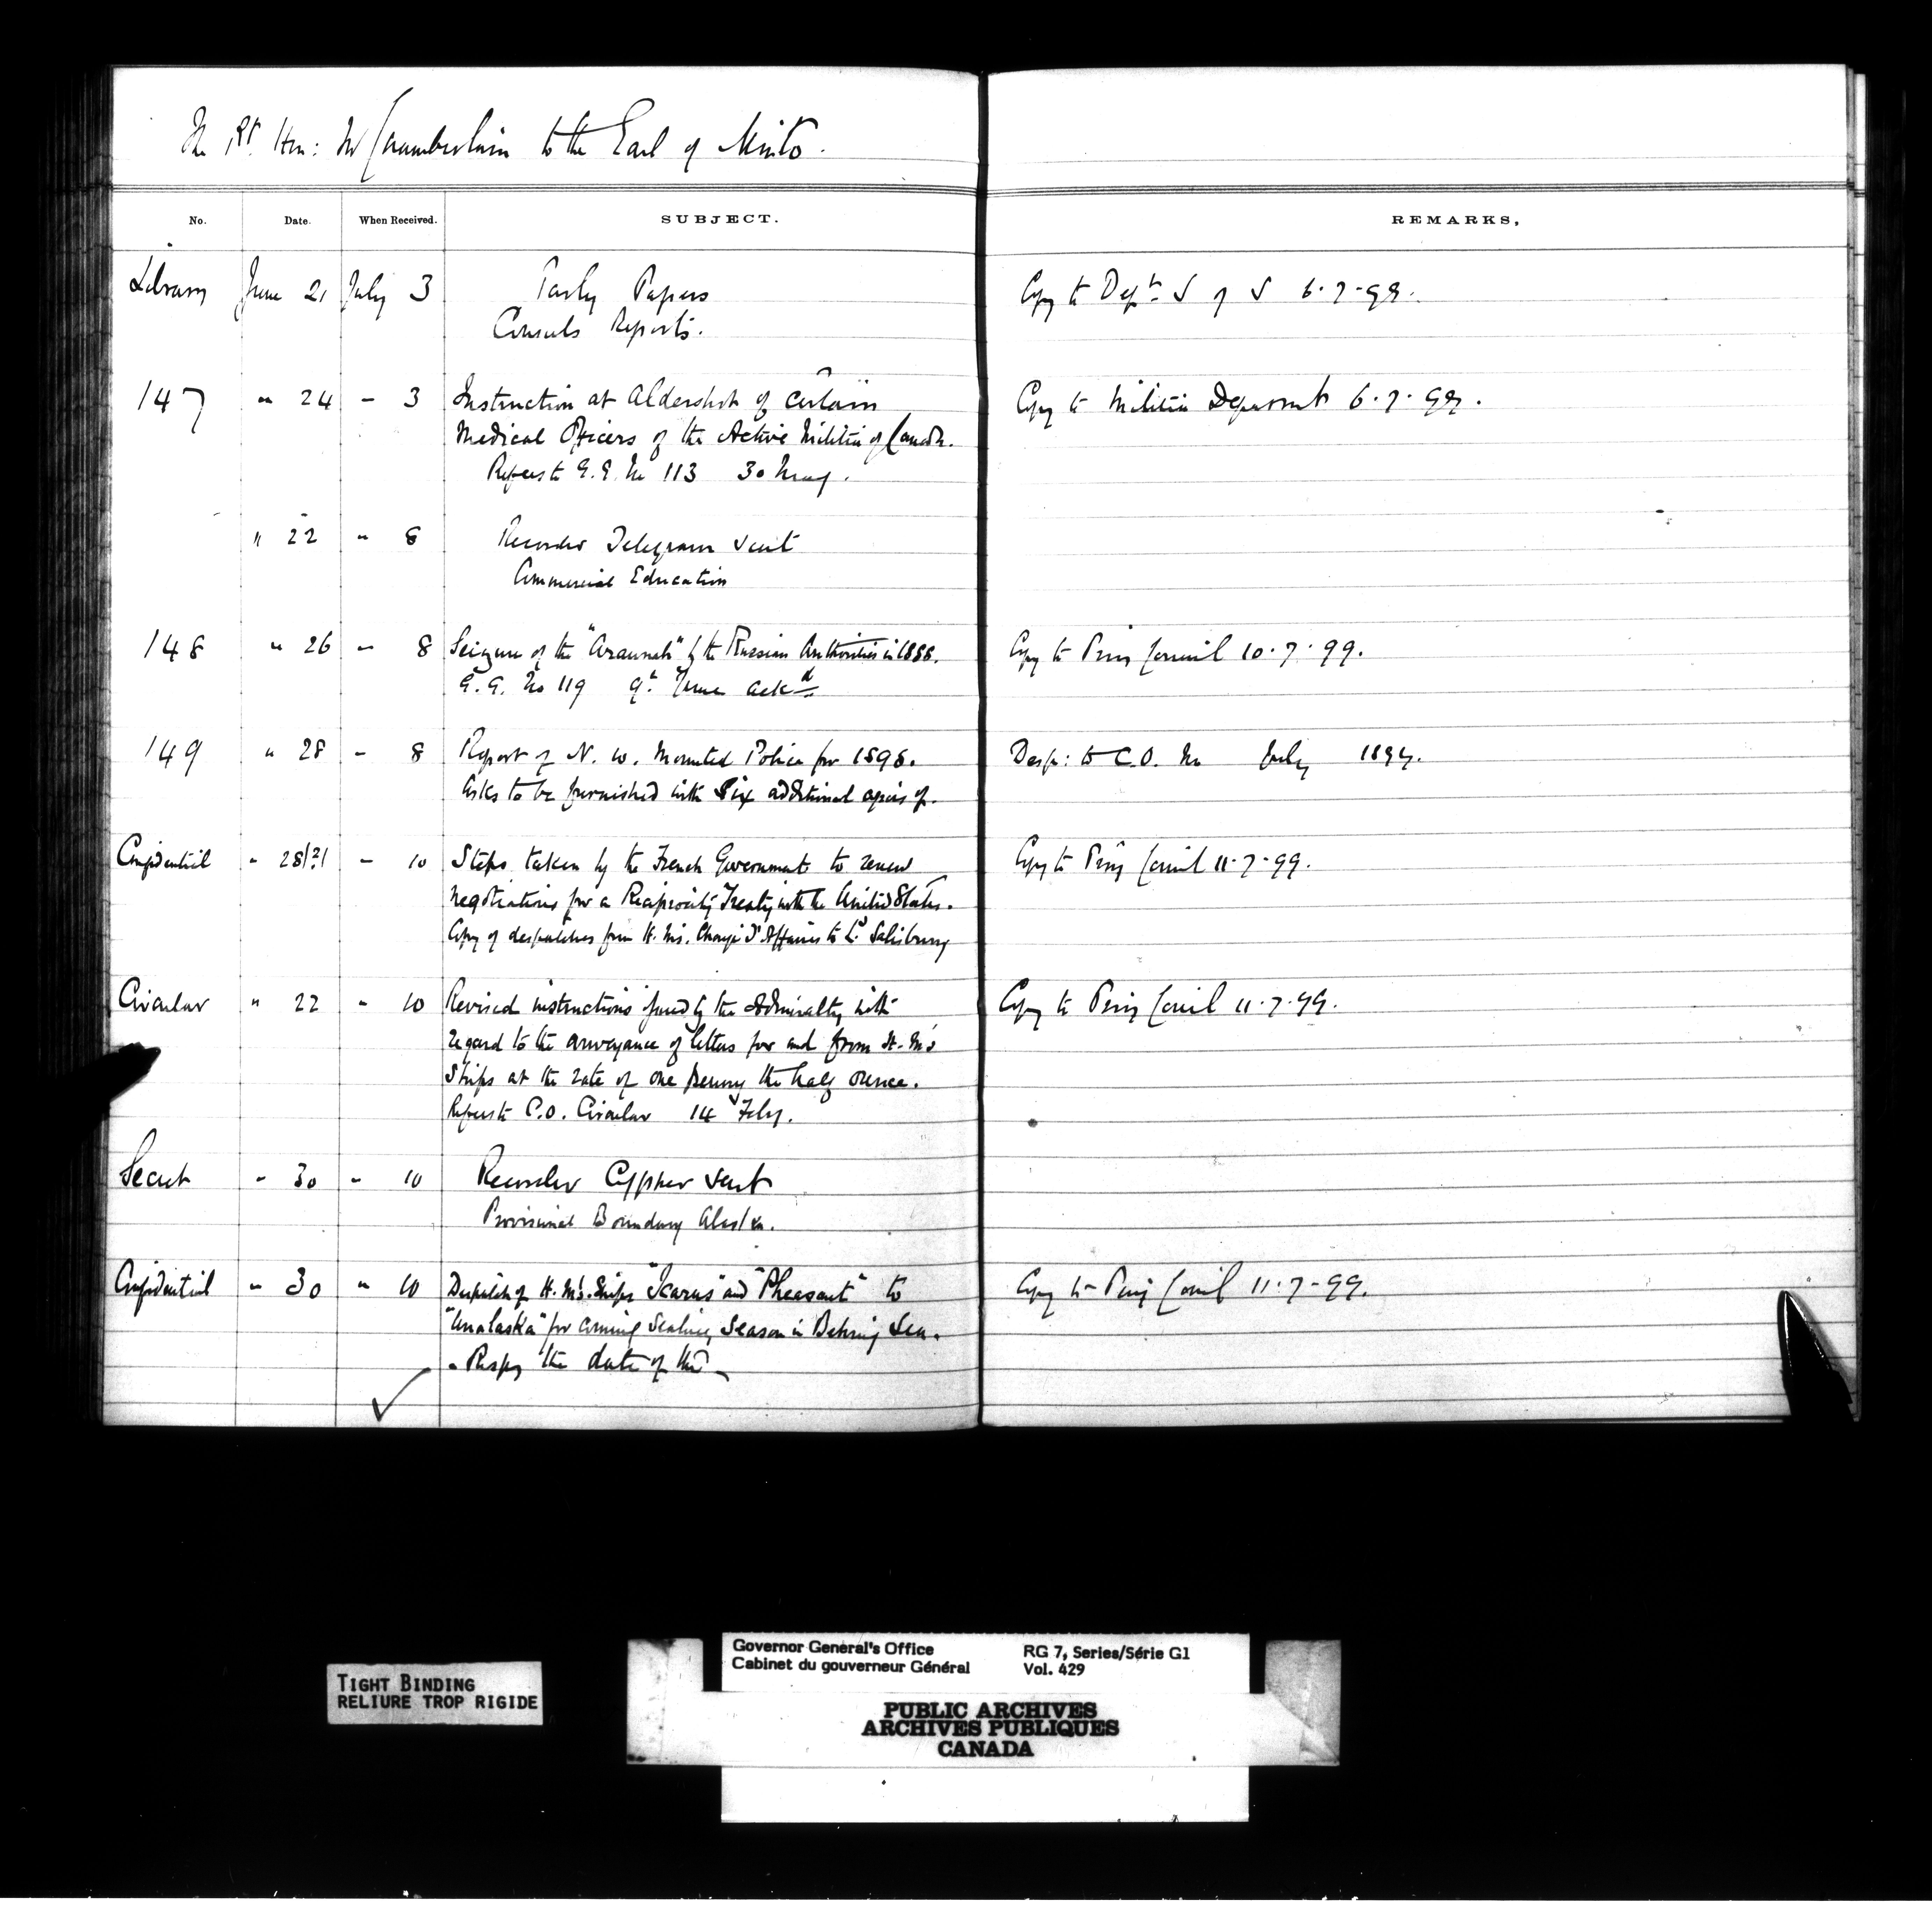 The Rt. Hon: Mr Chamberlain to the Earl of Minto.
No. Date. When Received. SUBJECT. REMARKS,
Library June 21 July 3 Parly Papers Copy to Dept. S of S 6.7.99.
Consuls Reports.
147 " 24 - 3 Instruction at Aldershot of certain Copy to Militia Department 6.7.99.
Medical Officers of the Active Militia of Canada.
Refers to G.G. No 113 30 May.
" 22 " 8 Recorder Telegram sent
Commercial Education
148 " 26 - 8 Seizure of the "Araunah" by the Russian Authorities in 1888. Copy to Privy Council 10.7.99.
G.G. No 119 9th June ackd
149 " 28 - 8 Report of N. W. Mounted Police for 1898. Desp: to C.O. No July 1899.
Asks to be furnished with six additional copies of.
Confidential " 28/21 - 10 Steps taken by the French Government to renew Copy to Privy Council 11.7.99.
negotiations for a Reciprocity Treaty with the United States.
Copy of despatches from H. M's. Chargé d'Affaires to Ld. Salisbury
Circular " 22 " 10 Revised instructions issued by the Admiralty with Copy to Privy Council 11.7.99.
regard to the conveyance of letters for and from H. M's
Ships at the rate of one penny the half ounce.
Refers to C.O. Circular 14 Feby.
Secret " 30 " 10 Recorder Cypher sent
Provisional Boundary Alaska.
Confidential " 30 " 10 Despatch of H. M's. Ships "Icarus" and "Pheasant" to Copy to Privy Council 11.7.99.
"Unalaska" for coming Sealing Season in Behring Sea.
- the date of
TIGHT BINDING
RELIURE TROP RIGIDE
Governor General's Office RG 7, Series/Série G1
Cabinet du gouverneur Général Vol. 429
PUBLIC ARCHIVES
ARCHIVES PUBLIQUES
CANADA